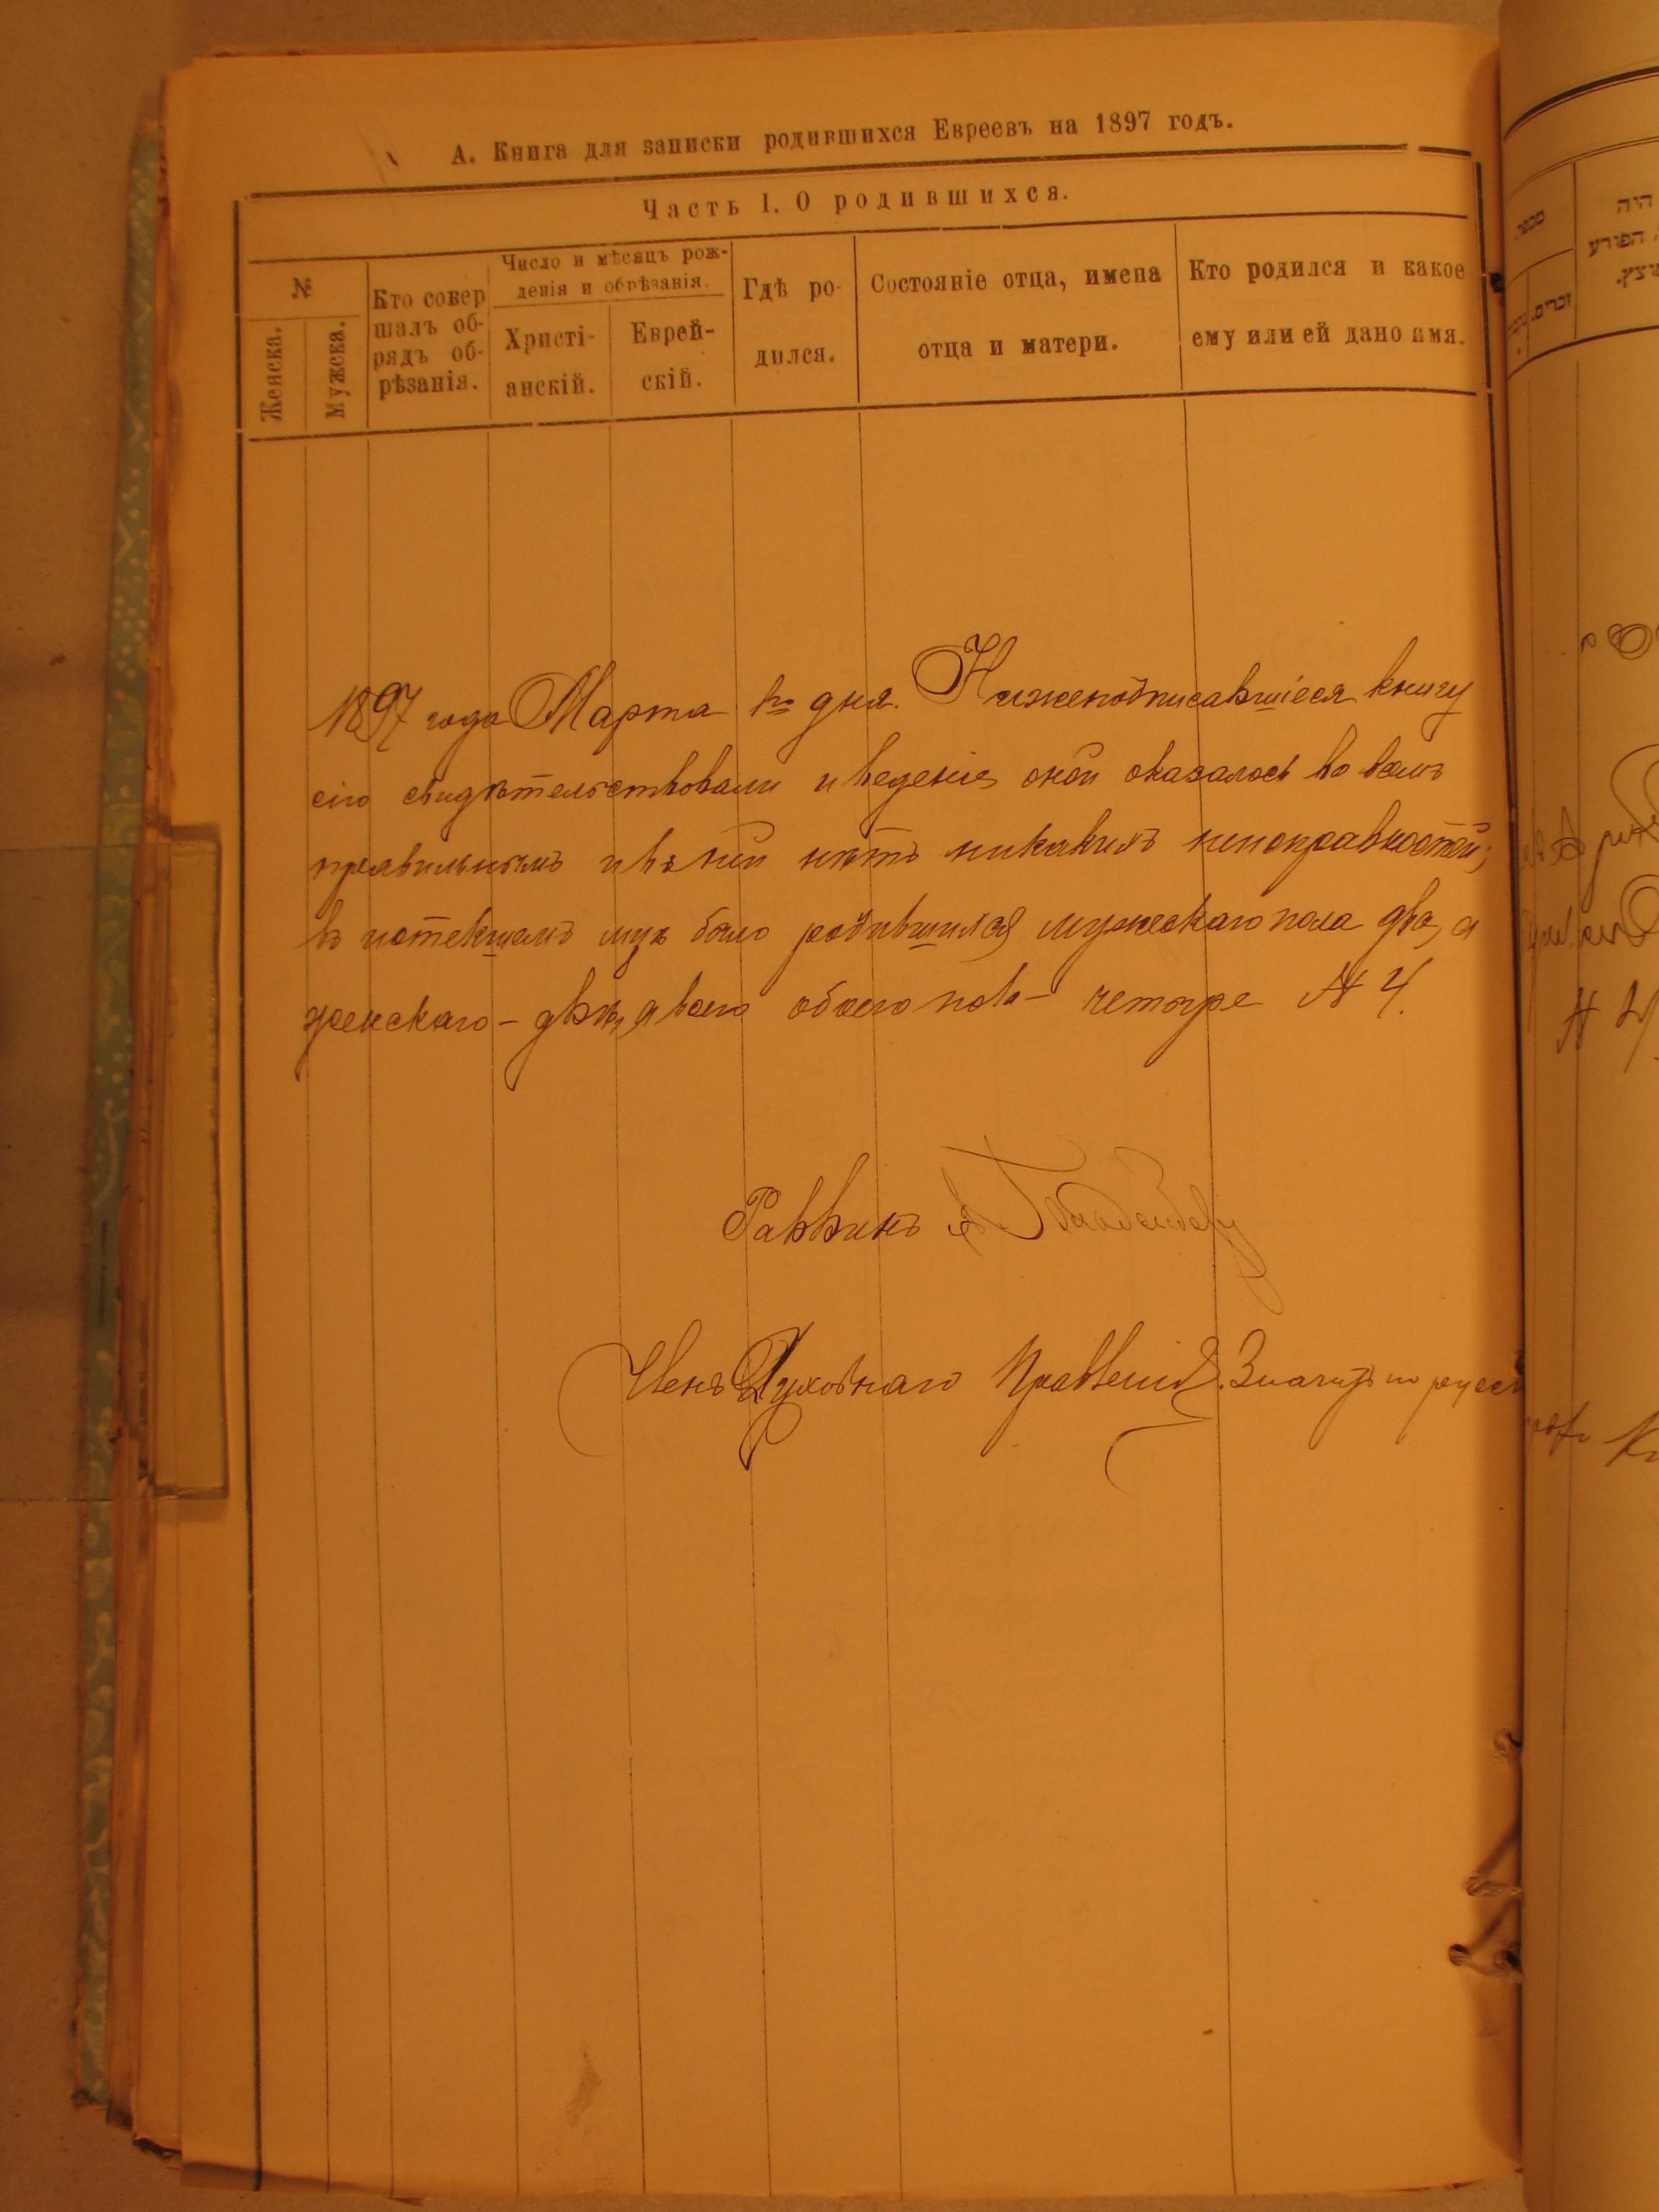 А. Книга для записки родившихся Евреевъ на 1897 годъ.
Часть I. О родившихся.
№
Женска.
Мужска.
Кто совер
шалъ об-
рядъ об-
рѣзанія.
Число и мѣсяцъ рож-
денія и обрѣзанія.
Христі-
анскій.
Еврей-
скій.
Гдѣ ро-
дился.
Состояніе отца, имена
отца и матери.
Кто родился и какое
ему или ей дано имя.
1897 года Марта 1го дня. Нижеподписавшіеся книгу
сію свидѣтельствовали и веденіе оной оказалось во всемъ
правильнымъ и въ ней нѣтъ никакихъ неисправностей;
въ истекшемъ м-цѣ было родившихся мужескаго пола два, а
женскаго – двѣ, а всего обоего пола – четыре № 4.
Раввинъ
Членъ Духовнаго Правленія
היה
מספר
הפורע
זכרים.
№ 4